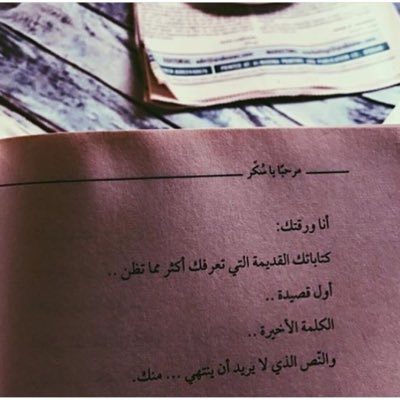 مرحبًا يا سُكّر
أنا ورقتك:
كتاباتك القديمة التي تعرفك أكثر مما تظن ..
أول قصيدة ..
الكلمة الأخيرة ..
والنّص الذي لا يريد أن ينتهي ... منك.